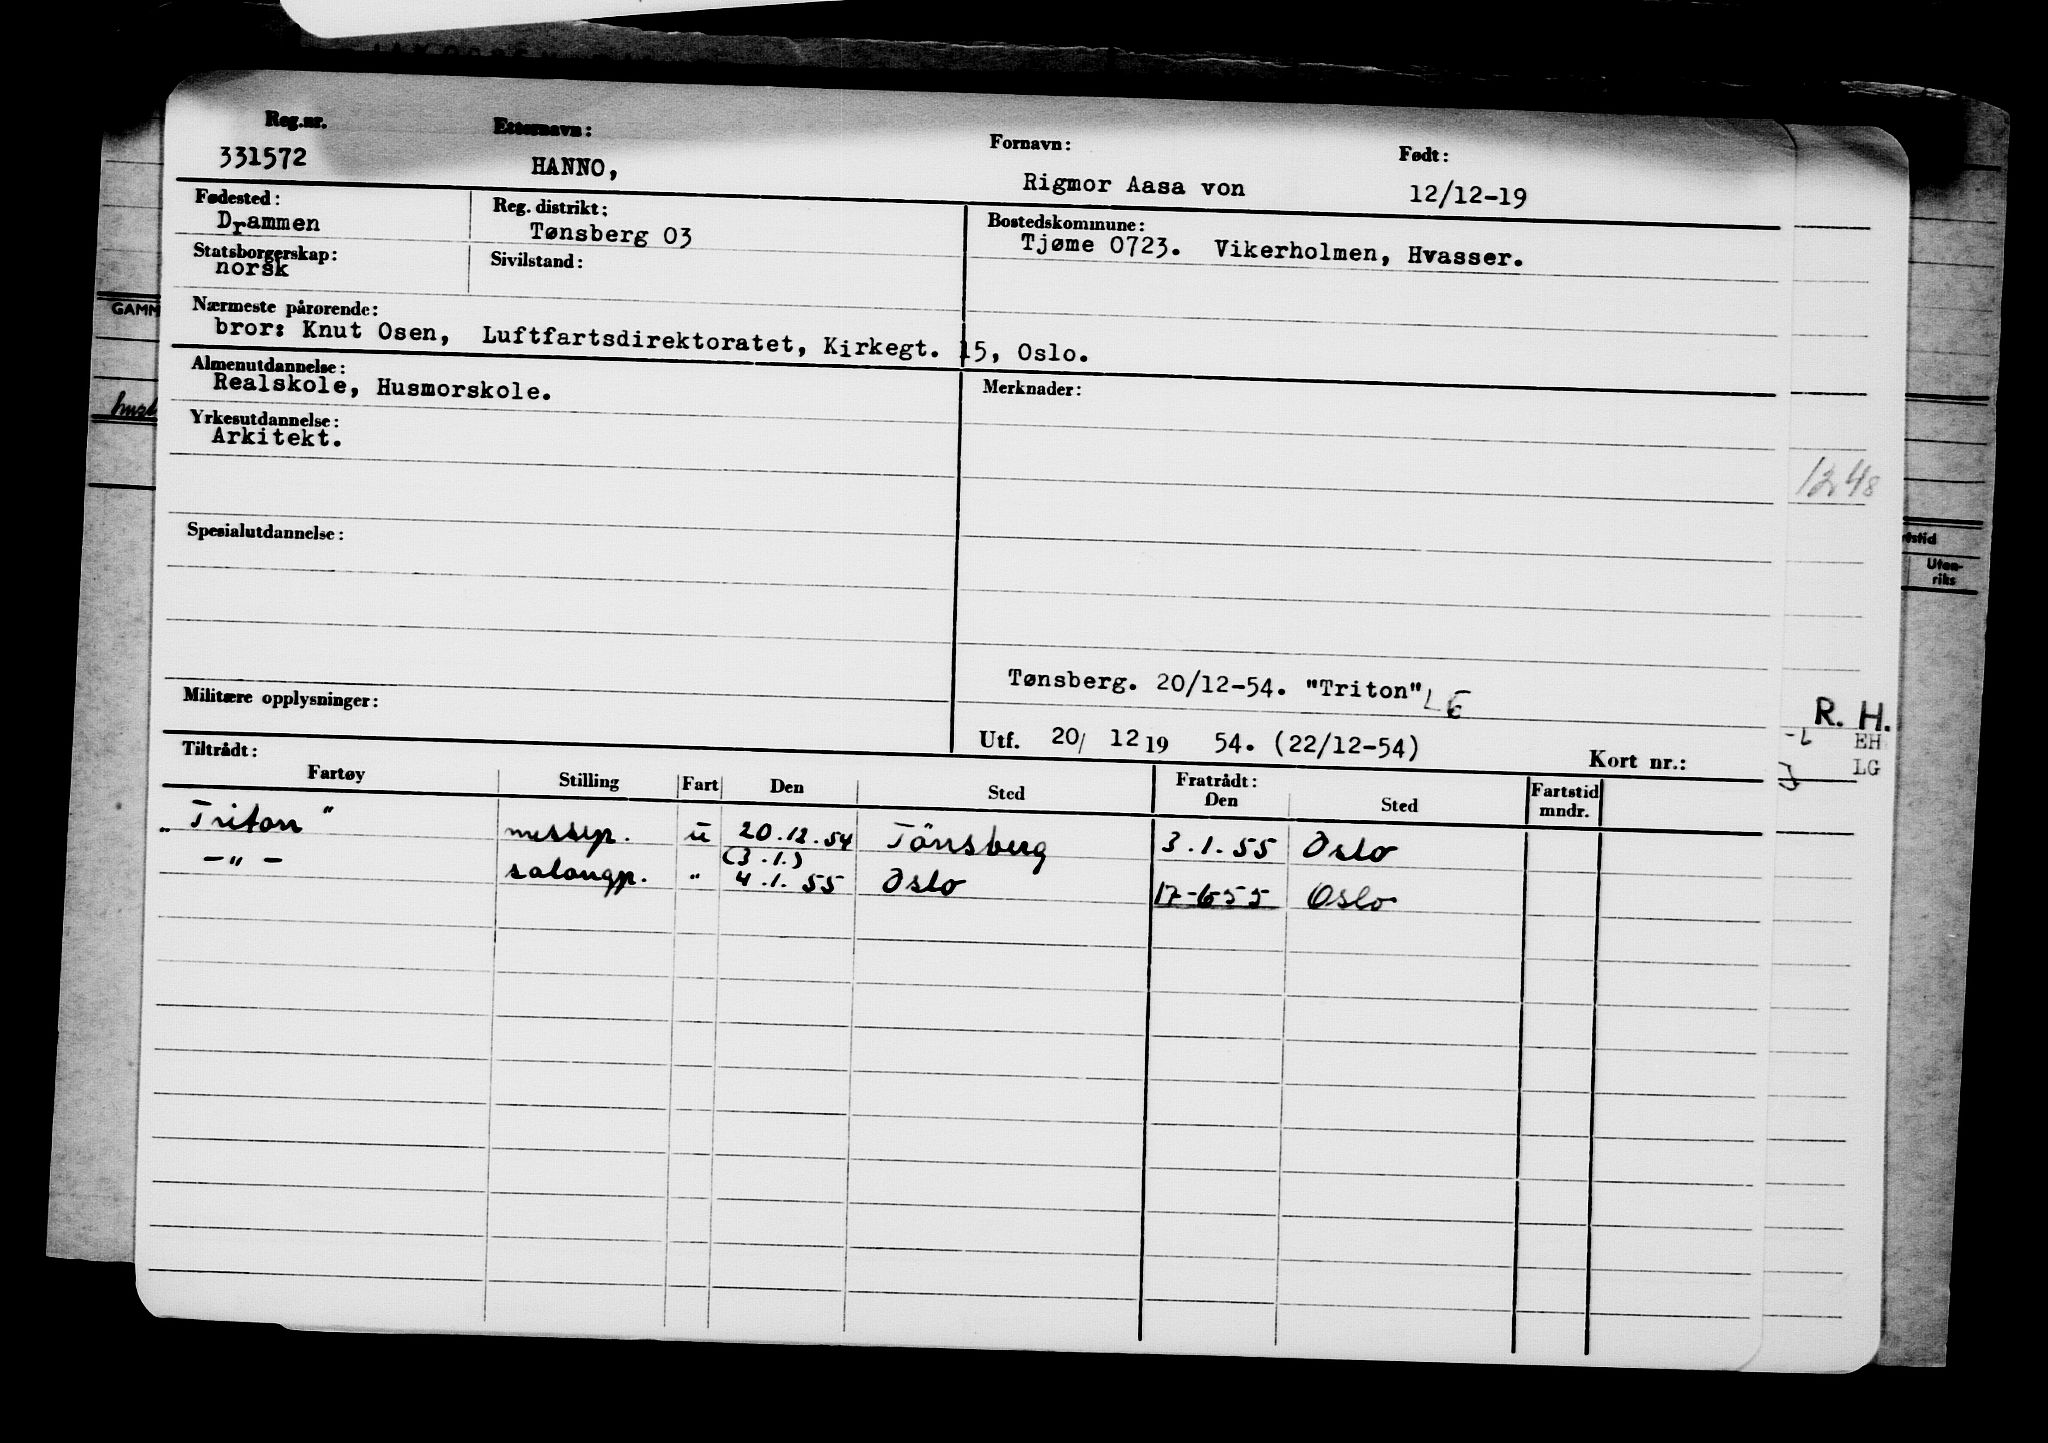 Reg.nr. Etternavn: Fornavn: Født:
331572 HANNO, Rigmor Aasa von 12/12-19
Fødested: Reg. distrikt: Bostedskommune:
Drammen Tønsberg 03 Tjøme 0723. Vikerholmen, Hvasser.
Statsborgerskap: Sivilstand:
norsk
Nærmeste pårørende:
bror: Knut Osen, Luftfartsdirektoratet, Kirkegt. 15, Oslo.
Almenutdannelse: Merknader:
Realskole, Husmorskole.
Yrkesutdannelse:
Arkitekt.
Spesialutdannelse:
Tønsberg. 20/12-54. "Triton"
Militære opplysninger:
Utf. 20/ 12 19 54. (22/12-54) Kort nr.:
Tiltrådt: Fratrådt:
Fartøy Stilling Fart Den Sted Den Sted Fartstid mndr.
"Triton" messep. u 20.12.54 Tönsberg 3.1.55 Oslo
(3.1.)
-"- salongp. " 4.1.55 Oslo 17-6-55 Oslo
GAMM
R. H.
EH
LG
Uten-
riks